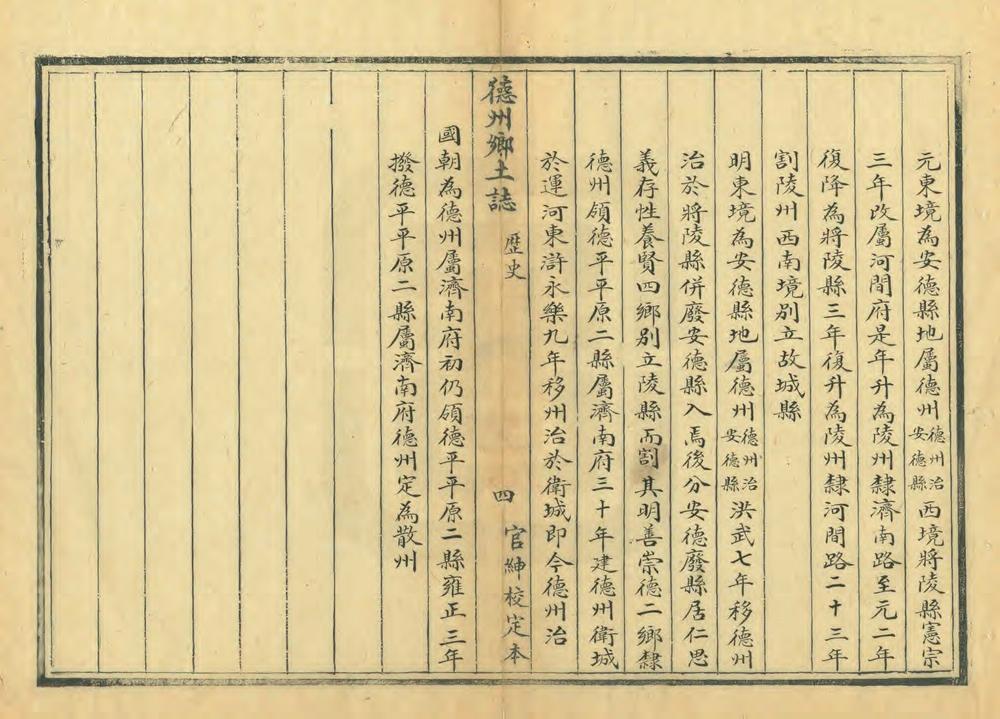 元東境為安德縣地屬德州德州治安德縣西境將陵縣憲宗
三年改屬河間府是年升為陵州隸濟南路至元二年
復降為將陵縣三年復升為陵州隸河間路二十三年
割陵州西南境別立故城縣
明東境為安德縣地屬德州德州治安德縣洪武七年移德州
治於將陵縣併廢安德縣入焉後分安德廢縣居仁思
義存性養賢四鄉別立陵縣而割其明善崇德二鄉隸
德州領德平平原二縣屬濟南府三十年建德州衛城
於運河東滸永樂九年移州治於衛城即今德州治
德州鄉土誌 歷史 四 官紳校定本
國朝為德州屬濟南府初仍領德平平原二縣雍正三年
撥德平平原二縣屬濟南府德州定為散州